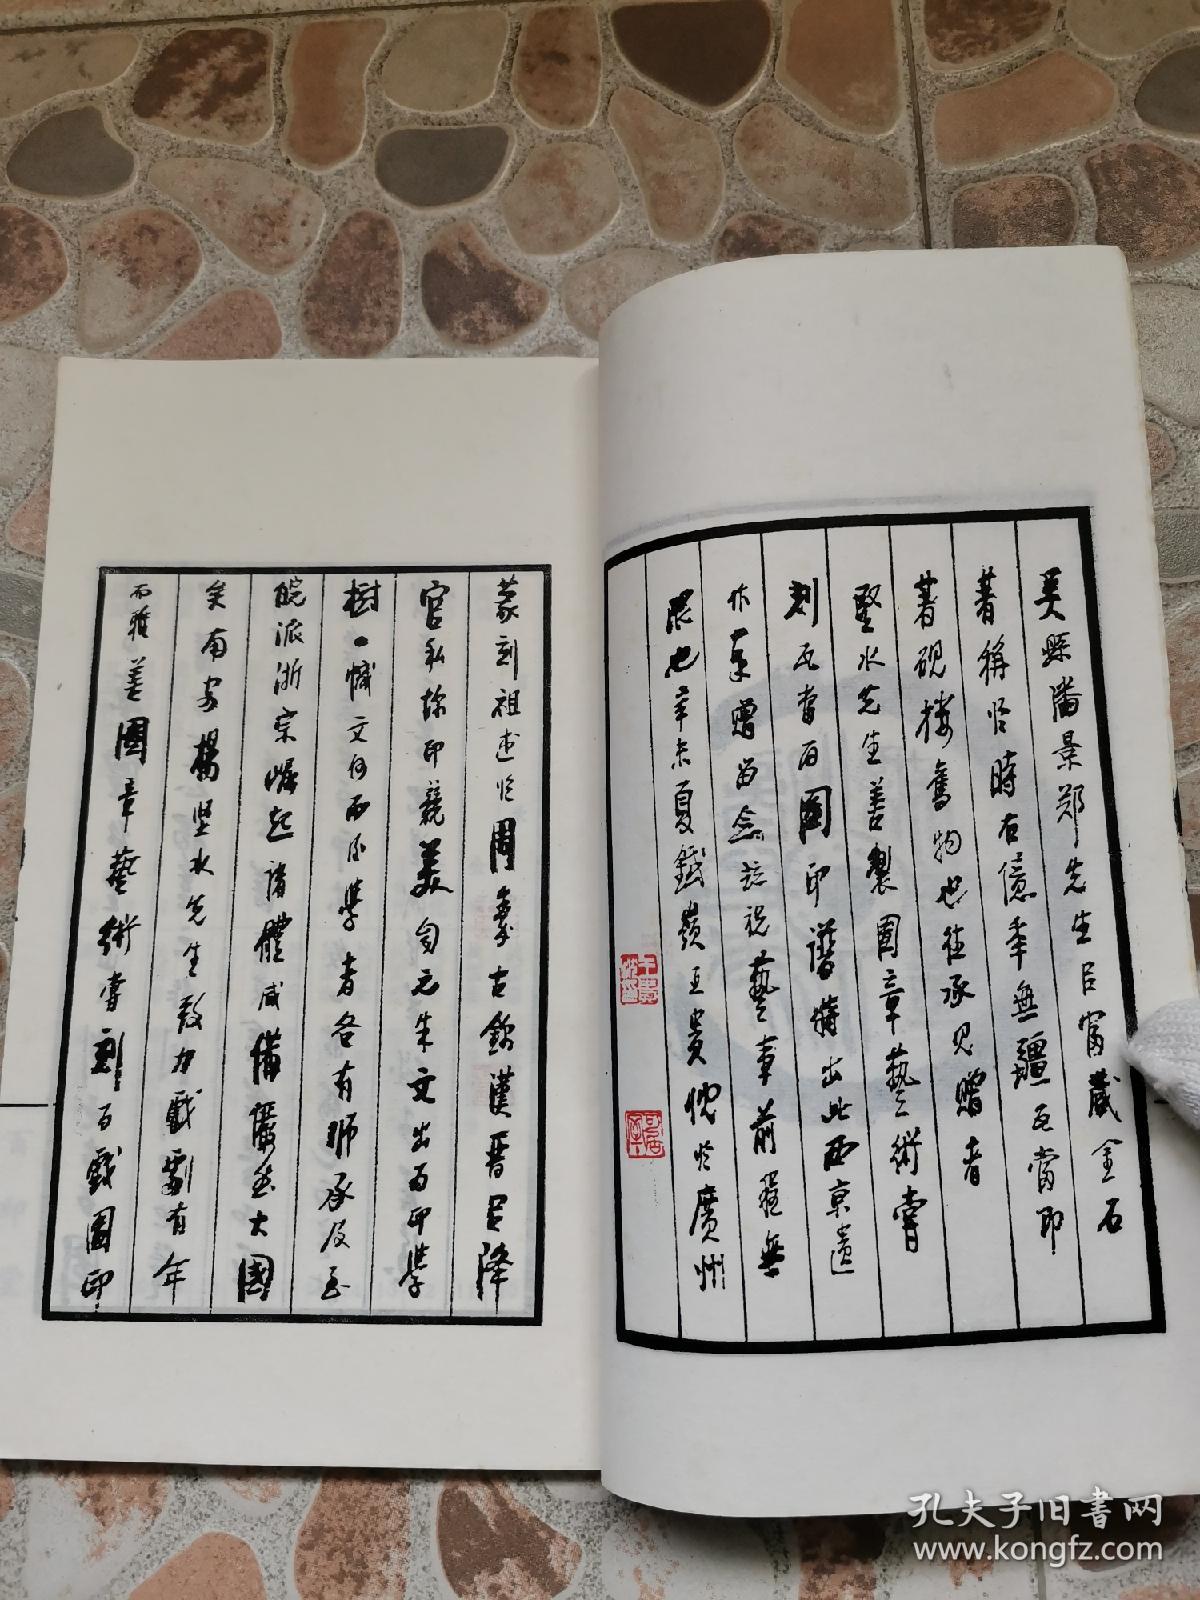 吴縣潘景郑先生㠯富藏金石
著稱於時右億年無疆瓦當即
著硯樓舊物也往承見贈者
堅水先生善製圖章藝術嘗
刻瓦當百圖印譜特出此西京遺
作奉贈留念並祝藝章前程無
限也辛未夏鐵嶺王貴忱於廣州
篆刻祖述於周秦古鉨漢晋㠯降
官私鉨印競美自元朱文出而印學
樹一幟文何而後學者各有師承及至
皖派浙宗崛起諸體咸備蔚為大國
矣南安楊堅水先生致力戲劇有年
而雅善圖章藝術嘗刻百戲圖印
孔夫子旧書网
www.kongfz.com